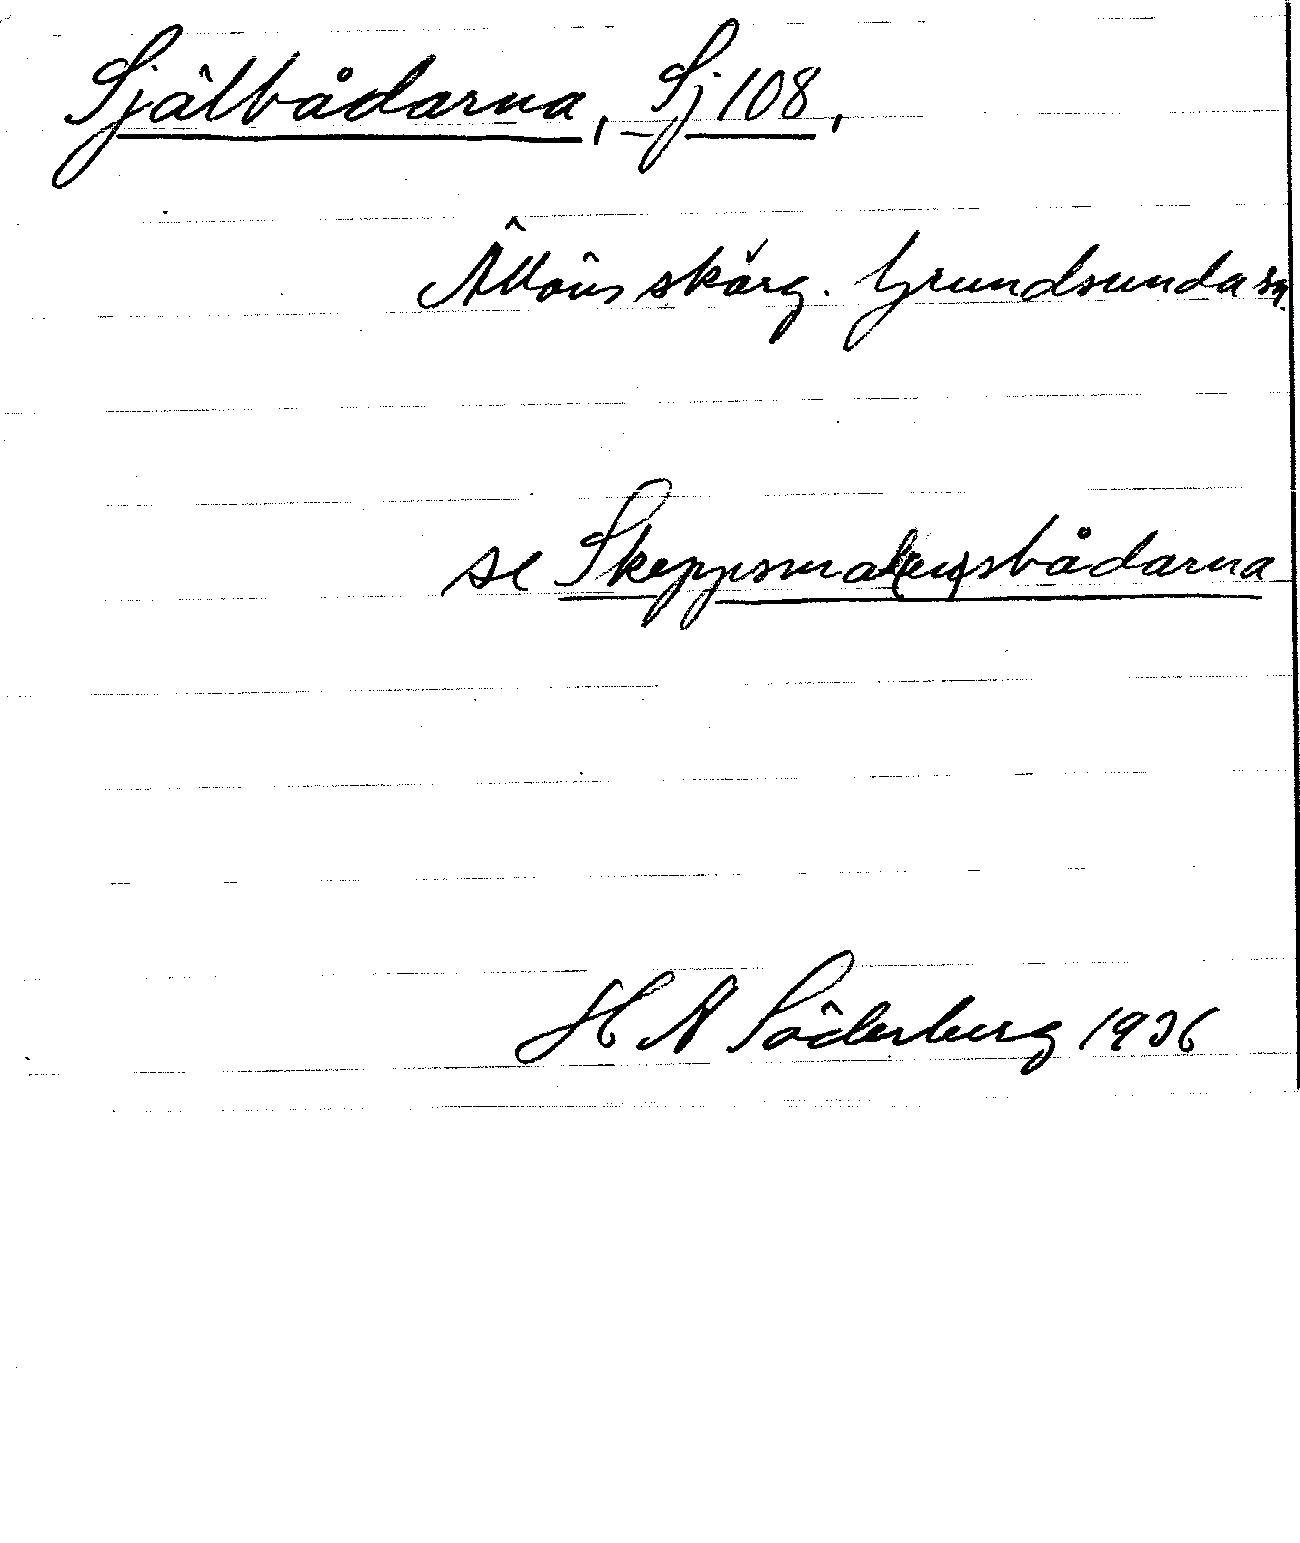 Själbådarna, Sj 108,
skärg. Grundsunda sn.
se Skeppsmal(en)sbådarna
H A Söderberg 1936